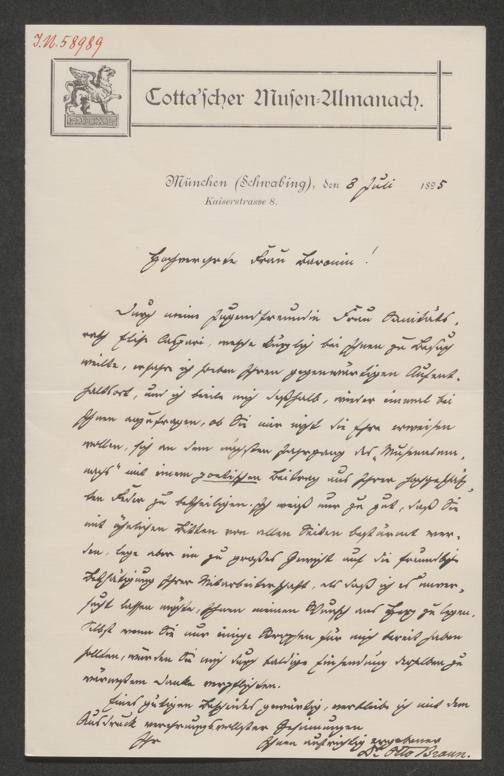 J.N. 58989
Cotta'scher Musen-Almanach.
München (Schwabing), den 8 Juli 1895
Kaiserstrasse 8.
Hochverehrte Frau Baronin!
Durch meine Jugendfreundin Frau Sanitäts-
rath Elise Caspari, welche kürzlich bei Ihnen zu Besuch
weilte, erfahre ich soeben Ihren gegenwärtigen Aufent-
haltsort, und ich beeile mich deßhalb, wieder einmal bei
Ihnen anzufragen, ob Sie mir nicht die Ehre erweisen
wollen, sich an dem nächsten Jahrgang des „Musenalma-
nachs" mit einem poetischen Beitrag aus Ihrer hochgeschätz-
ten Feder zu betheiligen. Ich weiß nur zu gut, daß Sie
mit ähnlichen Bitten von allen Seiten bestürmt wer-
den, lege aber ein zu großes Gewicht auf die freundliche
Bethätigung Ihrer Mitarbeiterschaft, als daß ich es unver-
sucht lassen möchte, Ihnen meinen Wunsch ans Herz zu legen.
Selbst wenn Sie nur einige Strophen für mich bereit haben
sollten, würden Sie mich durch baldige Einsendung derselben zu
wärmstem Danke verpflichten.
Eines gütigen Bescheides gewärtig, verbleibe ich mit dem
Ausdruck verehrungsvollster Gesinnungen
Ihr Ihnen aufrichtig ergebener
Dr. Otto Braun.